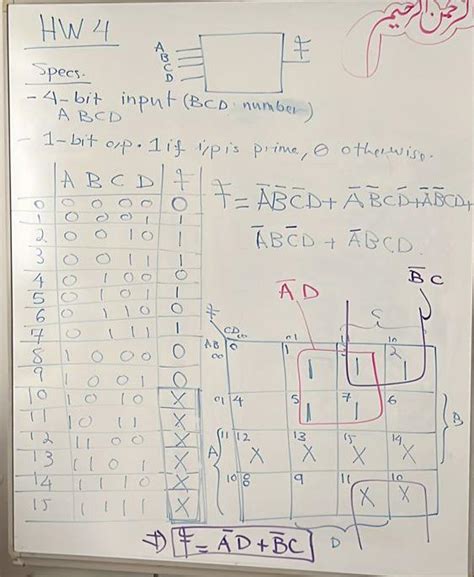 الرحمن الرحيم
HW 4
A
B
C
D
F
Specs.
- 4-bit input (BCD number)
A B C D
- 1-bit o/p. 1 if i/p is prime, 0 otherwise.
A B C D F
0 0 0 0 0 0
1 0 0 0 1 1
2 0 0 1 0 1
3 0 0 1 1 1
4 0 1 0 0 0
5 0 1 0 1 1
6 0 1 1 0
7 0 1 1 1 1
8 1 0 0 0 0
9 1 0 0 1 0
10 1 0 1 0 X
11 1 0 1 1 X
12 1 1 0 0 X
13 1 1 0 1 X
14 1 1 1 0 X
15 1 1 1 1 X
F = A̅B̅C̅D + A̅B̅CD̅ + A̅B̅CD +
A̅BC̅D + A̅BCD
A̅D
B̅C
F
C
CD 01 10
AB 00 0 1 1 1 2 1
01 4 5 1 7 1 6 B
A 11 12 X 13 X 15 X 14 X
10 8 9 11 X 10 X
D
⇒ F = A̅D + B̅C